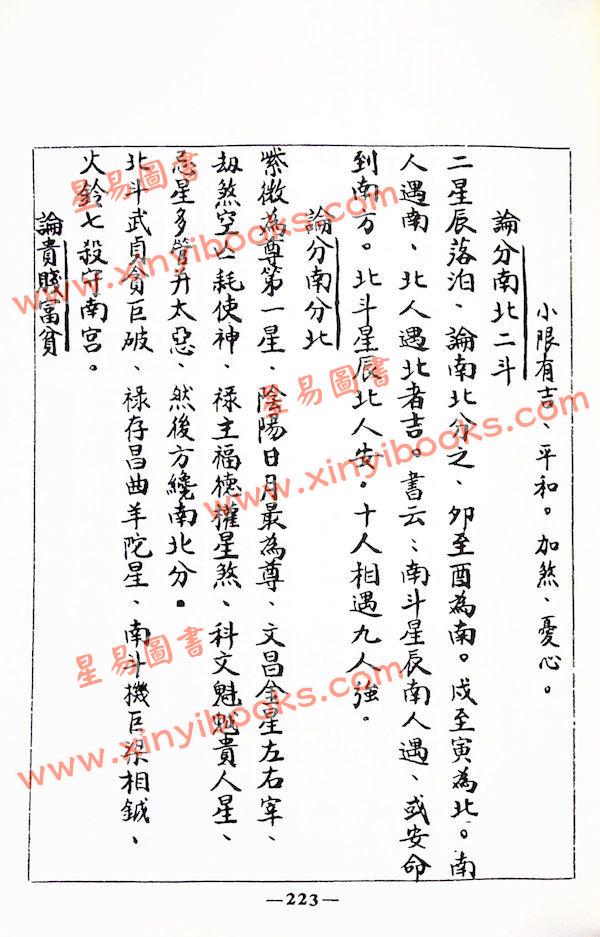 小限有吉、平和。加煞、憂心。
論分南北二斗
二星辰落泊、論南北分之、卯至酉為南。戌至寅為北。南
人遇南、北人遇北者吉。書云：南斗星辰南人遇、或安命
到南方。北斗星辰北人安。十人相遇九人強。
論分南分北
紫微為尊第一星、陰陽日月最為尊、文昌金星左右宰、
劫煞空亡耗使神、祿主福德權星煞、科文魁鉞貴人星、
忌星多管并太惡、然後方纔南北分。
北斗武貞貪巨破、祿存昌曲羊陀星、南斗機巨梁相鉞、
火鈴七殺守南宮。
論貴賤富貧
—223—
星易圖書
www.xinyibooks.com
星易圖書
www.xinyibooks.com
星易圖書
www.xinyibooks.com